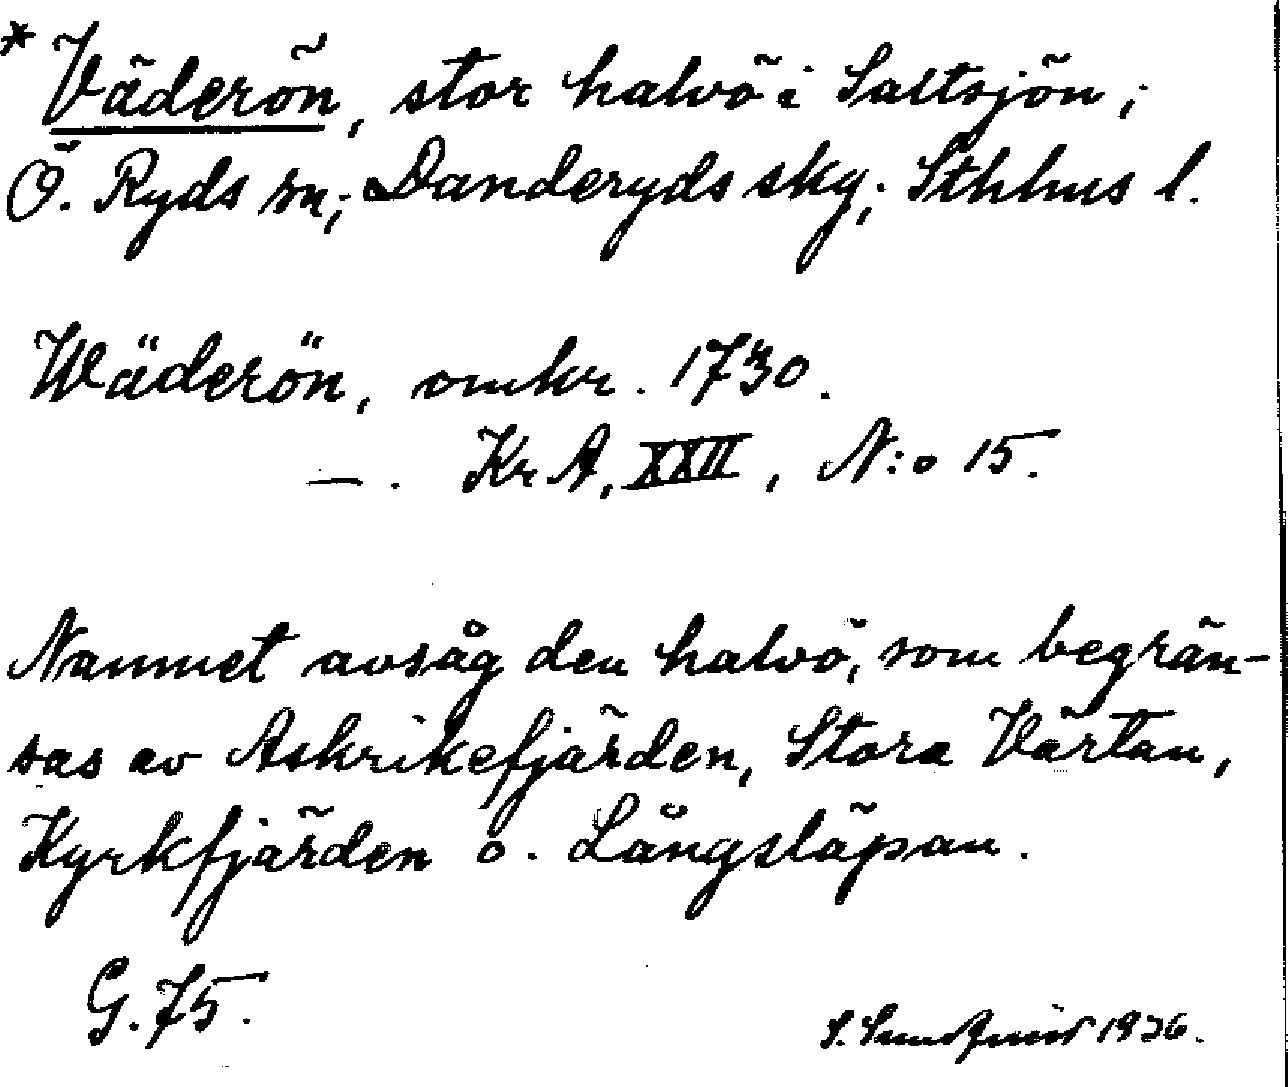 * Väderön, stor halvö i Saltsjön;
Ö. Ryds sn; Danderyds sky; Sthlms l.
Wäderön, omkr. 1730.
—. KrA, XXII, N:o 15.
Namnet avsåg den halvö, som begrän-
sas av Askrikefjärden, Stora Värtan,
Kyrkfjärden o. Långsläpan.
G. 75.
S. 1936.